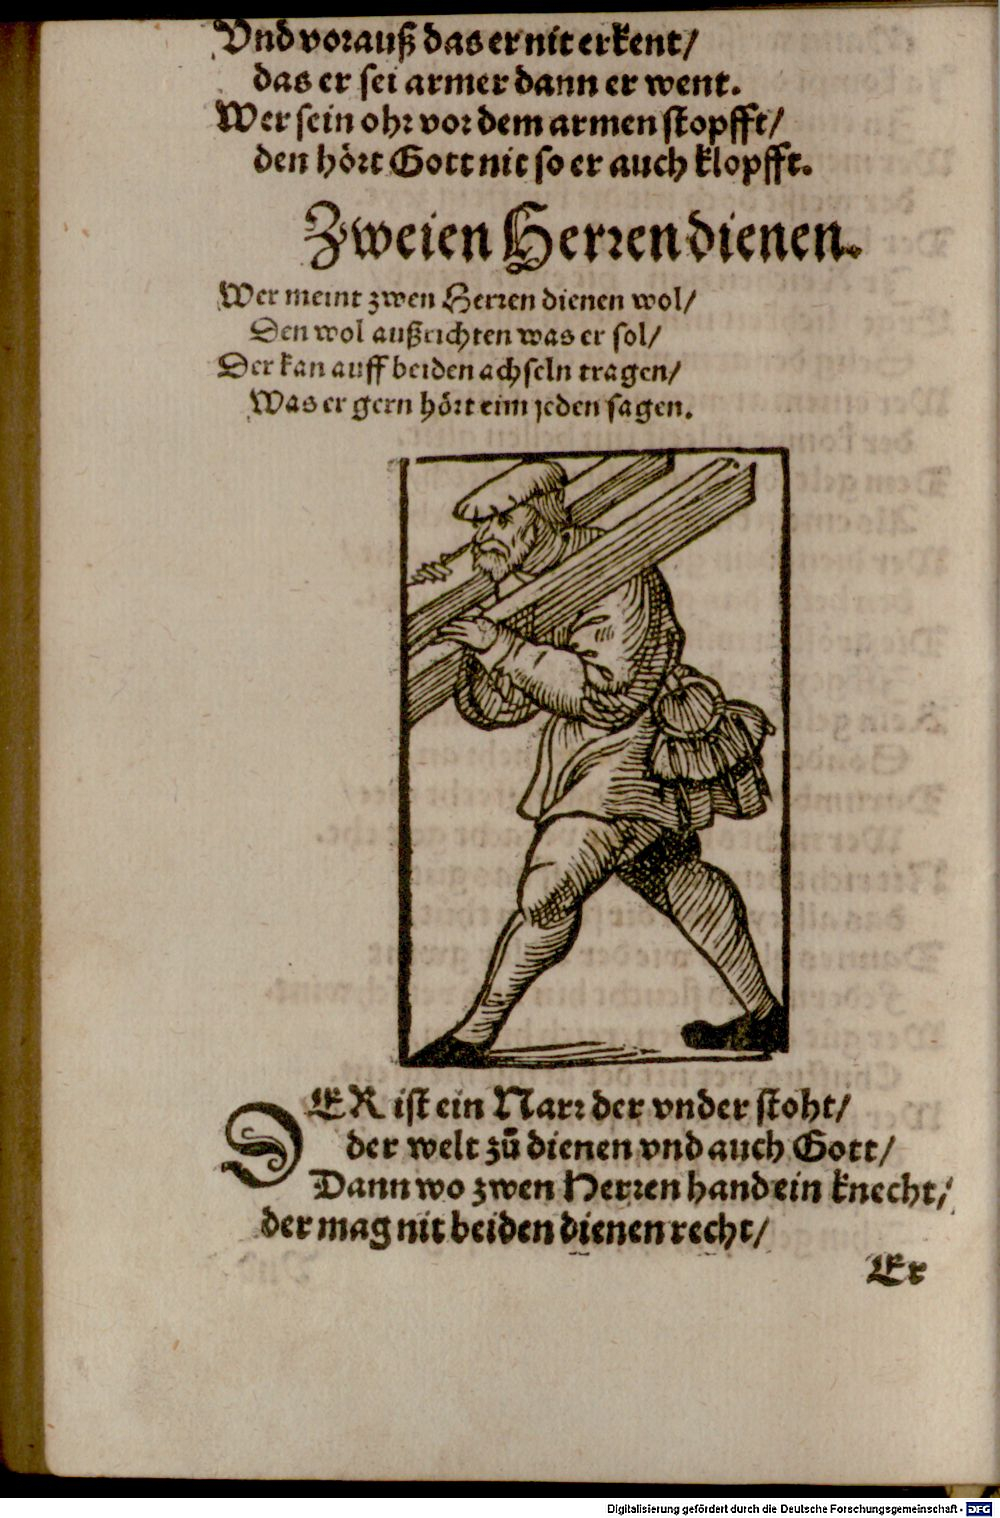 Vnd vorauß das er nit erkent/
das er sei armer dann er went.
Wer sein ohr vor dem armen stopfft/
den hört Gott nit so er auch klopfft.
Zweien Herren dienen.
Wer meint zwen Herren dienen wol/
Den wol außrichten was er sol/
Der kan auff beiden achseln tragen/
Was er gern hört eim jeden sagen.
DER ist ein Narr der vnder stoht/
der welt zů dienen vnd auch Gott/
Dann wo zwen Herren hand ein knecht/
der mag nit beiden dienen recht/
Er
Digitalisierung gefördert durch die Deutsche Forschungsgemeinschaft - DFG